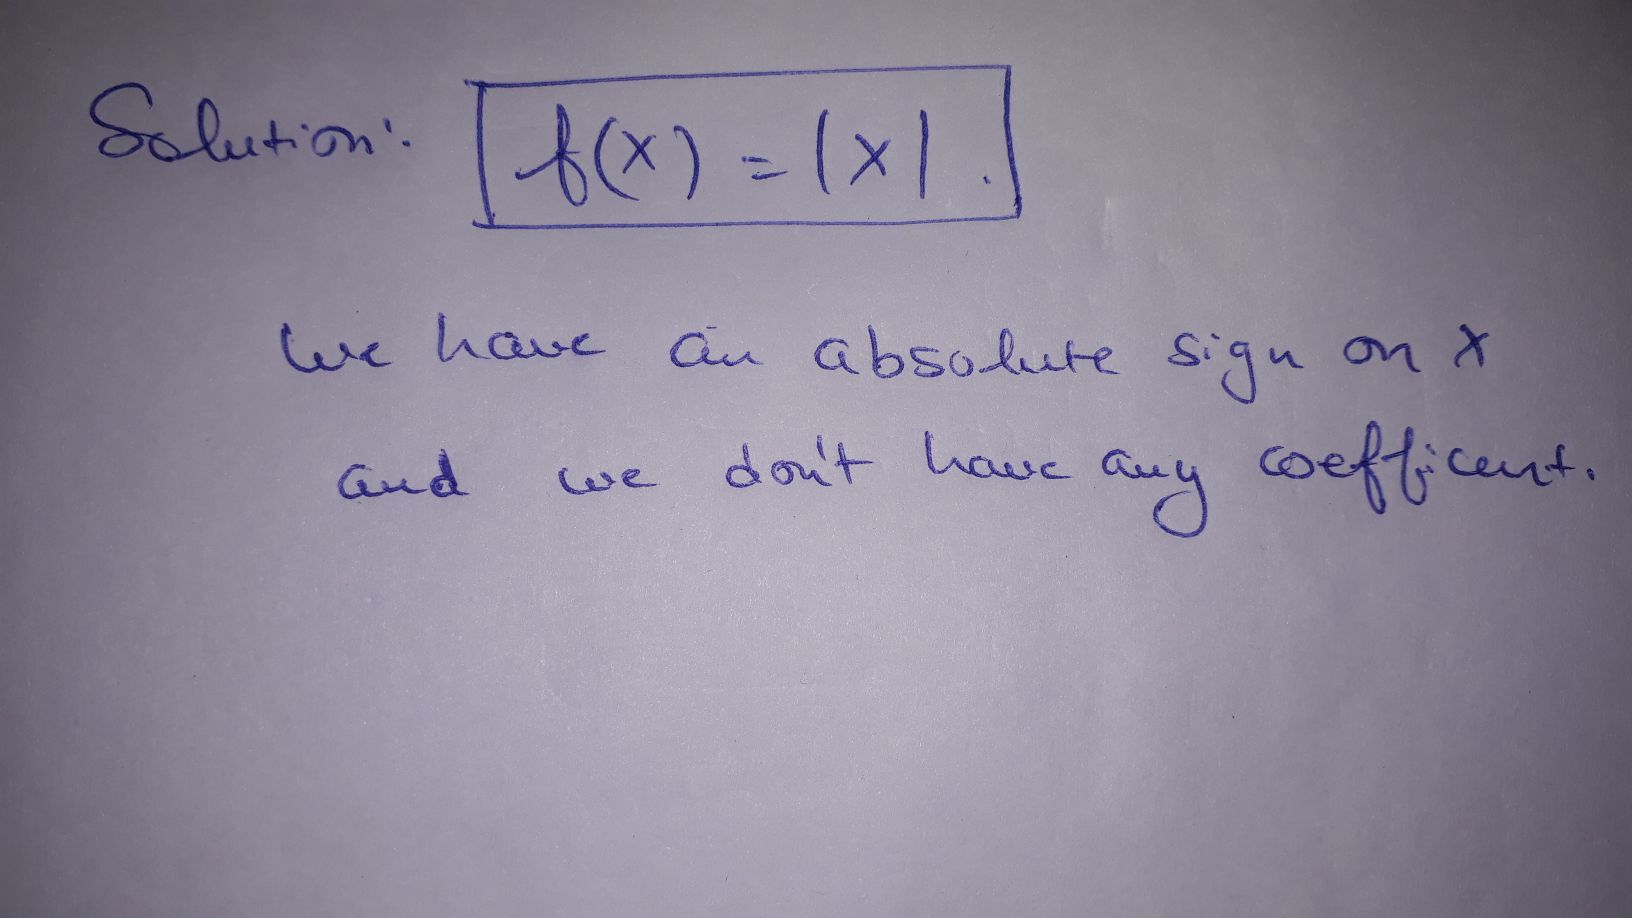 Solution: f(x) = |x|.
We have an absolute sign on x
and we don't have any coefficent.